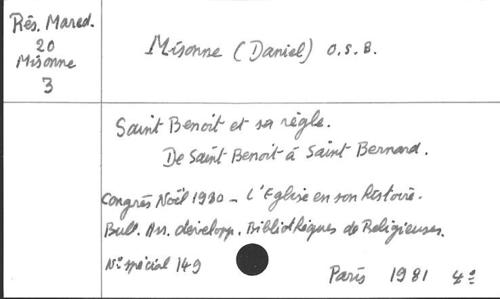 Rés. Mared.
20
Misonne
3
Misonne (Daniel) O.S.B.
Saint Benoit et sa règle.
De Saint Benoit à Saint Bernard.
Congrès Noël 1980 – L'Eglise en son histoire.
Bull. Ass. developp. Bibliothèques de Religieuses.
N° spécial 149
Paris 1981 4°